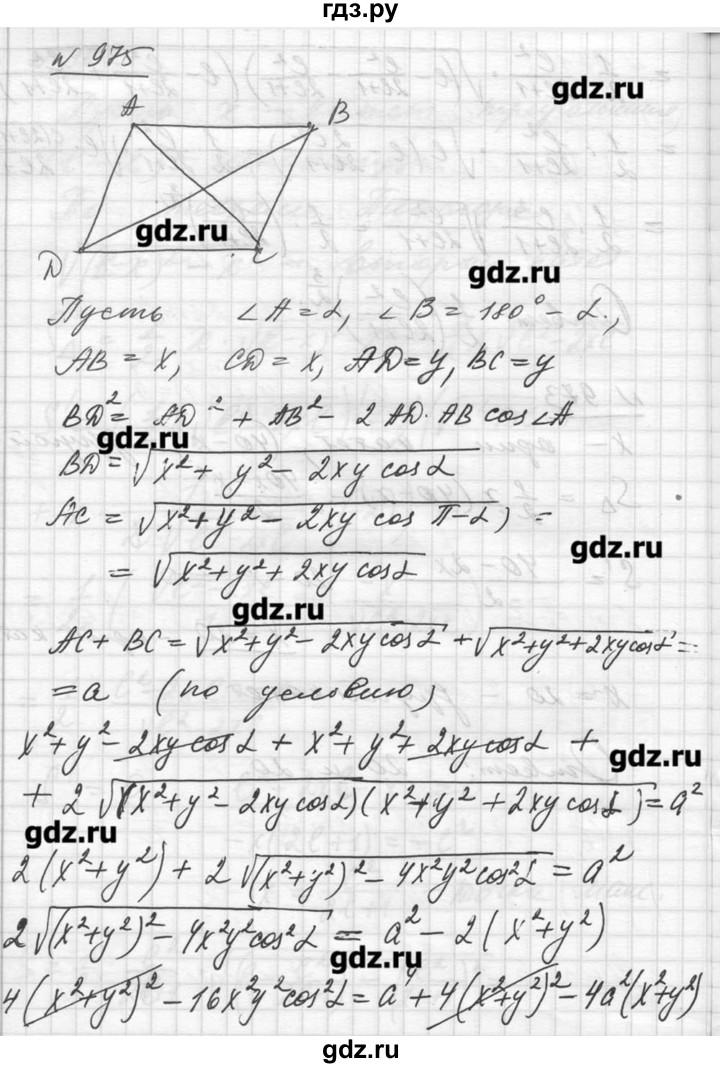 гдз.ру
№ 975
gdz.ru
A B
gdz.ru
D C
gdz.ru
Пусть ∠A = α, ∠B = 180° - α.,
AB = x, CD = x, AD = y, BC = y
BD² = AD² + AB² - 2 AD · AB cos∠A
gdz.ru
BD = √(x² + y² - 2xy cosα)
AC = √(x² + y² - 2xy cos π-α) =
gdz.ru
= √(x² + y² + 2xy cosα)
gdz.ru
AC + BC = √(x² + y² - 2xy cosα) + √(x² + y² + 2xy cosα) =
= a (по условию)
x² + y² - 2xy cosα + x² + y² + 2xy cosα +
gdz.ru
+ 2√((x² + y² - 2xy cosα)(x² + y² + 2xy cosα)) = a²
gdz.ru
2(x² + y²) + 2√((x² + y²)² - 4x²y²cos²α) = a²
2√((x² + y²)² - 4x²y²cos²α) = a² - 2(x² + y²)
gdz.ru
4(x² + y²)² - 16x²y²cos²α = a⁴ + 4(x² + y²)² - 4a²(x² + y²)
gdz.ru